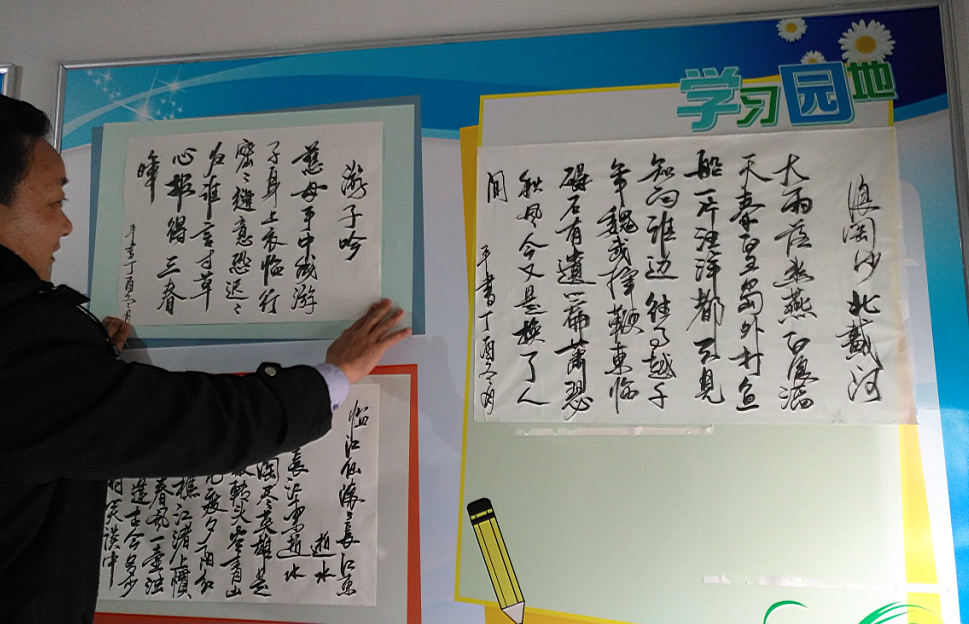 学习园地
游子吟
慈母手中线游
子身上衣临行
密々缝意恐迟々
归谁言寸草
心报得三春
晖
平书丁酉冬月
浪淘沙北戴河
大雨落幽燕白浪滔
天秦皇岛外打鱼
船一片汪洋都不见
知向谁边往事越千
年魏武挥鞭东临
碣石有遗篇萧瑟
秋风今又是换了人
间
平书丁酉冬月
临江仙滚々长江东
逝水
长江东逝水
淘尽英雄是
转头空青山
几度夕阳红
樵江渚上惯
春风一壶浊
逢古今多少
付笑谈中